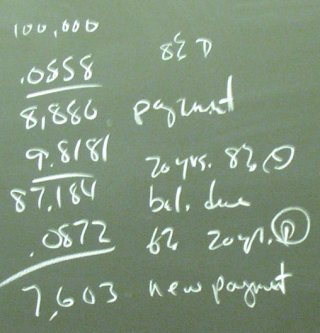 100,000
.0888 8% D
8,880 payment
9.8181 20 yrs. 8%
87,184 bal. due
.0872 6% 20 yr.
7,603 new payment